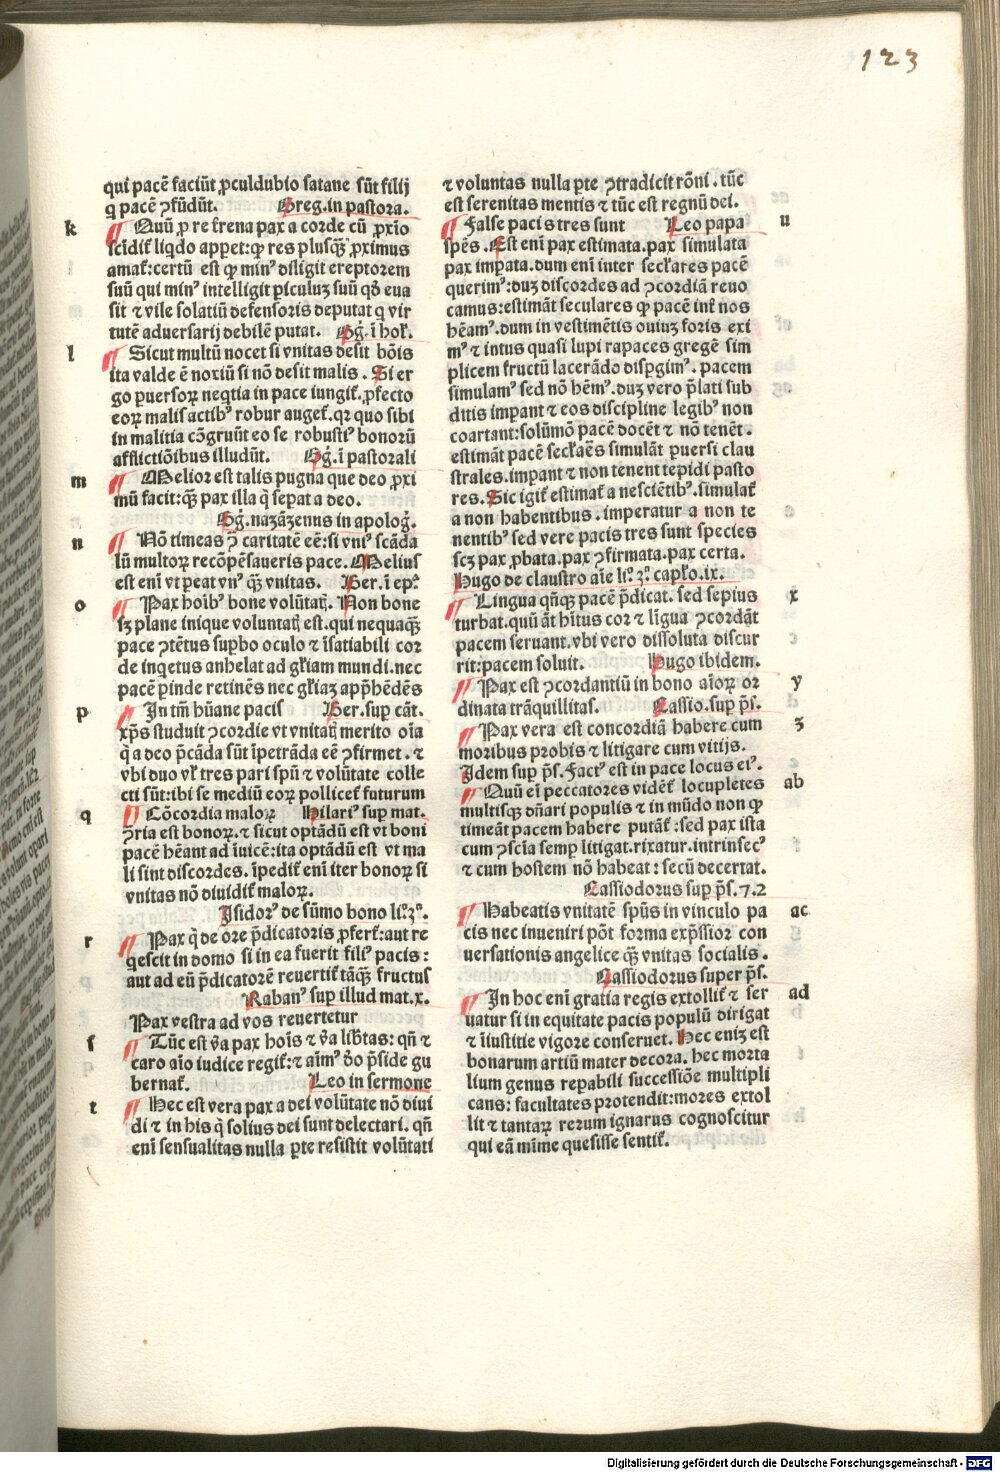 123
qui pacē faciūt ꝓculdubio satane sūt filij
q̇ pacē ꝯfūdūt. Greg.in pastora.
k Quū ꝓ re terrena pax a corde cū ꝓxīo
scīdit̉ liq̇do appet:qꝫ res plusq̄ꝫ ꝓximus
amat̉:certū est qꝫ minꝰ diligit ereptorem
suū qui minꝰ intelligit ꝑiculuꝫ suū qđ eua
sit ⁊ vile solatiū defensoris deputat q̇ vir
tutē aduersarij debilē putat. Gg̉.ī hok̉.
l Sicut multū nocet si vnitas desit bōis
ita valde ē noxiū si nō desit malis. Si er
go ꝑuersoꝝ neq̇tia in pace iungit̉.ꝓfecto
eoꝝ malis actibꝰ robur auget̉.qꝛ quo sibi
in malitia cōgruūt eo se robustiꝰ bonorū
afflictiōibus illudūt. Gg̉.ī pastorali
m Melior est talis pugna que deo ꝓxi
mū facit:q̄ꝫ pax illa q̄ seꝑat a deo.
Gg̉.nazāzenus in apolog̉.
n Nō timeas ꝯ̄ caritatē eē:si vniꝰ scāda
lū multoꝝ recōpēsaueris pace. Melius
est enī vt ꝑeat vnꝰ q̄ꝫ vnitas. Ber.ī ep̄.
o Pax hoībꝰ bone volūtat̉. Non bone
sꝫ plane inique voluntat̉ est.qui nequaq̄ꝫ
pace ꝯtētus suꝑbo oculo ⁊ īsatiabili cor
de inq̇etus anhelat ad gl̄iam mundi.nec
pacē ꝑinde retinēs nec gl̄iaꝫ app̄hēdēs
p In tm̄ hūane pacis Ber.suꝑ cāt.
xp̄s studuit ꝯcordie vt vnitat̉ merito oīa
q̄ a deo p̄cāda sūt īpetrāda eē ꝯfirmet. ⁊
vbi duo vl̉ tres pari spū ⁊ volūtate colle
cti sūt:ibi se mediū eoꝝ pollicet̉ futurum
q Cōcordia maloꝝ Hilariꝰ suꝑ mat.
ꝯ̄ria est bonoꝝ.⁊ sicut optādū est vt boni
pacē hēant ad īuicē:ita optādū est vt ma
li sint discordes. īpedit̉ enī iter bonoꝝ si
vnitas nō diuidit̉ maloꝝ.
Isidorꝰ de sūmo bono li.°ꝫ°.
r Pax q̄ de ore p̄dicatoris ꝓfert̉:aut re
q̇escit in domo si in ea fuerit filiꝰ pacis:
aut ad eū p̄dicatorē reuertit̉ tāq̄ꝫ fructus
Rabanꝰ suꝑ illud mat.x.
Pax vestra ad vos reuertetur
s Tūc est v̄a pax hoīs ⁊ v̄a lib̄tas: qn̄ ⁊
caro aīo iudice regit̉:⁊ aīmꝰ đo p̄side gu
bernat̉. Leo in sermone
t Hec est vera pax a dei volūtate nō diui
di ⁊ in his q̄ solius dei sunt delectari. qn̄
enī sensualitas nulla ꝑte resistit volūtati
⁊ voluntas nulla ꝑte ꝯtradicit rōni. tūc
est serenitas mentis ⁊ tūc est regnū dei.
u False pacis tres sunt Leo papa
spēs. Est enī pax estimata.pax simulata
pax imꝑata.dum enī inter secl̉ares pacē
querimꝰ:duꝫ discordes ad ꝯcordiā reuo
camus:estimāt seculares qꝫ pacē int̉ nos
hēamꝰ.dum in vestimētis ouiuꝫ foris exi
mꝰ ⁊ intus quasi lupi rapaces gregē sim
plicem fructū lacerādo disꝑgimꝰ. pacem
simulamꝰ sed nō hēmꝰ.duꝫ vero p̄lati sub
ditis imꝑant ⁊ eos discipline legibꝰ non
coartant:solūmō pacē docēt ⁊ nō tenēt.
estimāt pacē secl̉aēs simulāt ꝑuersi clau
strales.imꝑant ⁊ non tenent tepidi pasto
res. Sic igit̉ estimat̉ a nesciētibꝰ.simulat̉
a non habentibus. imperatur a non te
nentibꝰ sed vere pacis tres sunt species
scꝫ pax ꝓbata.pax ꝯfirmata.pax certa.
Hugo de claustro aīe li.°ꝫ° capl̉o.ix.
x Lingua qn̄qꝫ pacē p̄dicat. sed sepius
turbat.quū āt hītus cor ⁊ līgua ꝯcordāt
pacem seruant.vbi vero dissoluta discur
rit:pacem soluit. Hugo ibidem.
y Pax est ꝯcordantiū in bono aīoꝝ or
dinata trāquillitas. Cassio.suꝑ p̄s.
z Pax vera est concordiā habere cum
moribus probis ⁊ litigare cum vitijs.
Idem suꝑ p̄s. Factꝰ est in pace locus eiꝰ.
ab Quū eī peccatores vidēt̉ locupletes
multisqꝫ dn̄ari populis ⁊ in mūdo non qꝫ
timeāt pacem habere putāt̉:sed pax ista
cum ꝯscīa semꝑ litigat.rixatur.intrinsecꝰ
⁊ cum hostem nō habeat: secū decertat.
Cassiodorus suꝑ p̄s.72
ac Habeatis vnitatē spūs in vinculo pa
cis nec inueniri pōt forma exp̄ssior con
uersationis angelice q̄ꝫ vnitas socialis.
Cassiodorus super p̄s.
ad In hoc enī gratia regis extollit̉ ⁊ ser
uatur si in equitate pacis populū dirigat
⁊ īiustitie vigore conseruet. Hec eniꝫ est
bonarum artiū mater decora. hec morta
lium genus reꝑabili successiōe multipli
cans: facultates protendit:mores extol
lit ⁊ tantaꝝ rerum ignarus cognoscitur
qui eā mīme quesisse sentit̉.
Digitalisierung gefördert durch die Deutsche Forschungsgemeinschaft - DFG